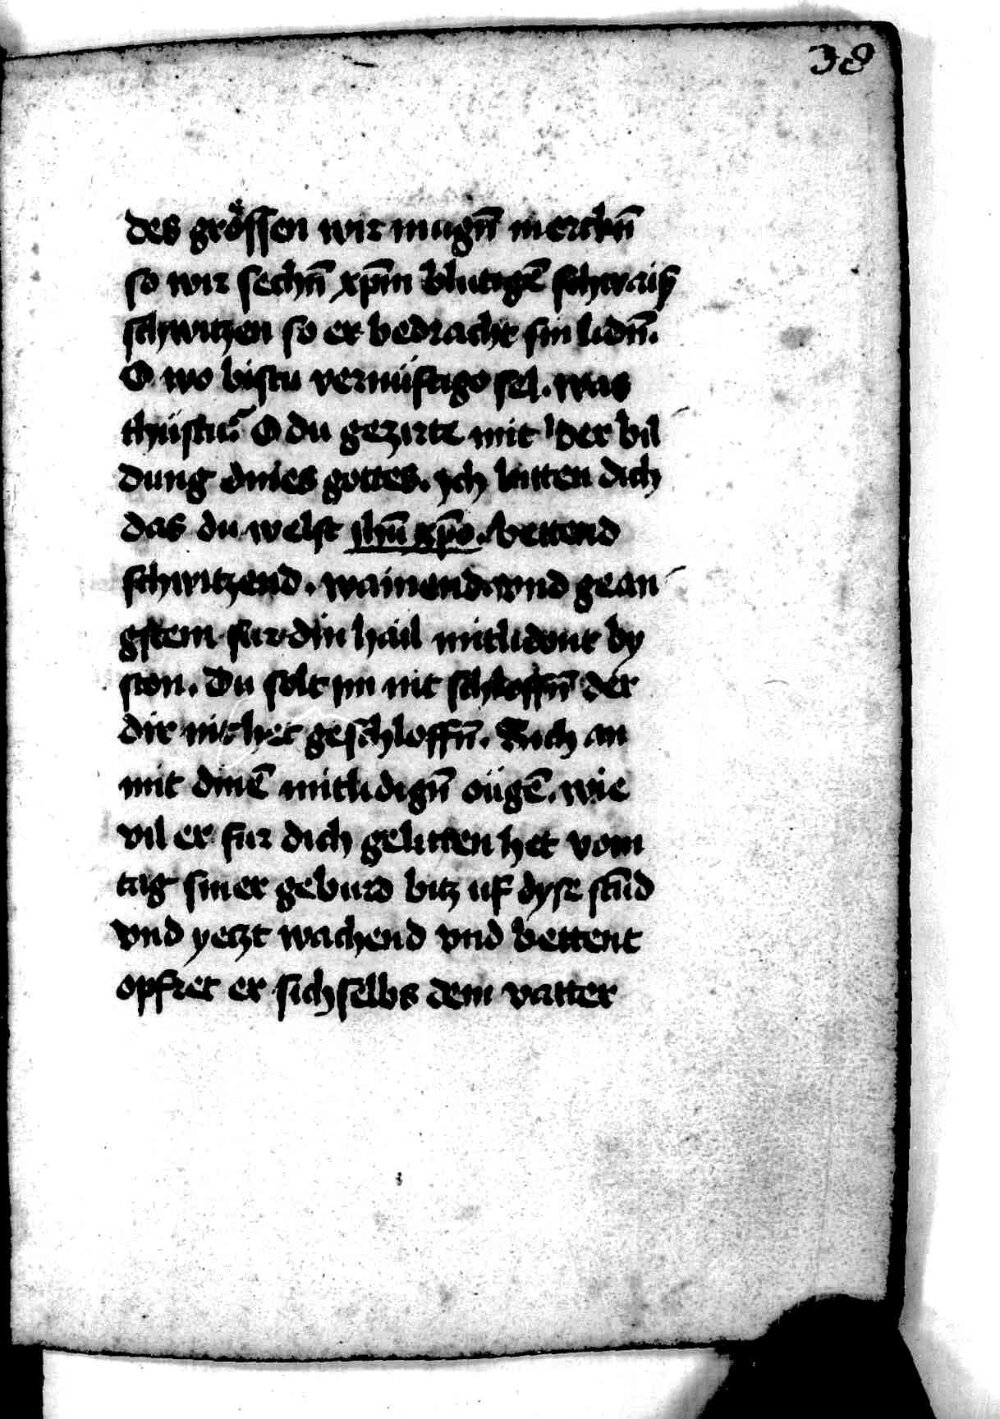 38
des grössen wir mugn̄ merckn̄
so wir sechn̄ xp̄m blutigē schwaiß
schwitzen so er bedracht sin lidn̄.
O wo bistu vernüftige sel. was
thüstu? O du gezirte mit der bil
dung dines gottes. ych bitten dich
das du welst jhū xp̄o. bettend
schwitzend. wainend vnd gean
gstem für din hail mitlident by
ston. Du solt im nit schloffn̄ der
dir nit het geschloffn̄. Sich an
mit dinē mitlidign̄ oügē. wie
vil er für dich gelitten het vom
tag siner geburd bitz uf dyse stūd
vnd yetzt wachend vnd bettent
opfret er sich selbs dem vatter